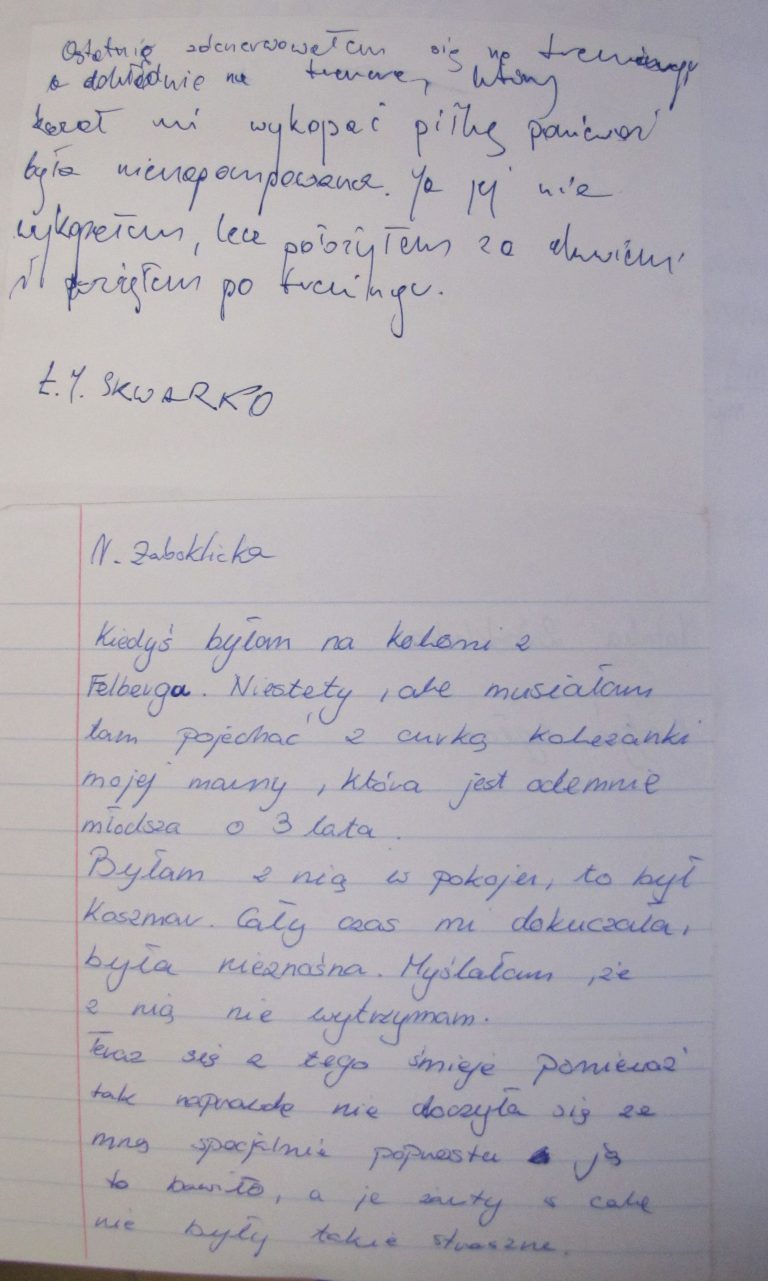 Ostatnio zdenerwowałem się na treningu
a dokładnie na trenera, który
kazał mi wykopać piłkę ponieważ
była nienapompowana. Ja jej nie
wykopałem, lecz położyłem za drzwiami
i wziąłem po treningu.
Ł.J. SKWARKO
N. Zaboklicka
Kiedyś byłam na koloni z
Felberga. Niestety, ale musiałam
tam pojechać z curką koleżanki
mojej mamy, która jest odemnie
młodsza o 3 lata.
Byłam z nią w pokoju, to był
Koszmar. Cały czas mi dokuczała,
była nieznośna. Myślałam, że
z nią nie wytrzymam.
Teraz się z tego śmieje ponieważ
tak naprawdę nie się ze
mną specjalnie poprostu ją
to bawiło, a jej żarty wcale
nie były takie straszne.